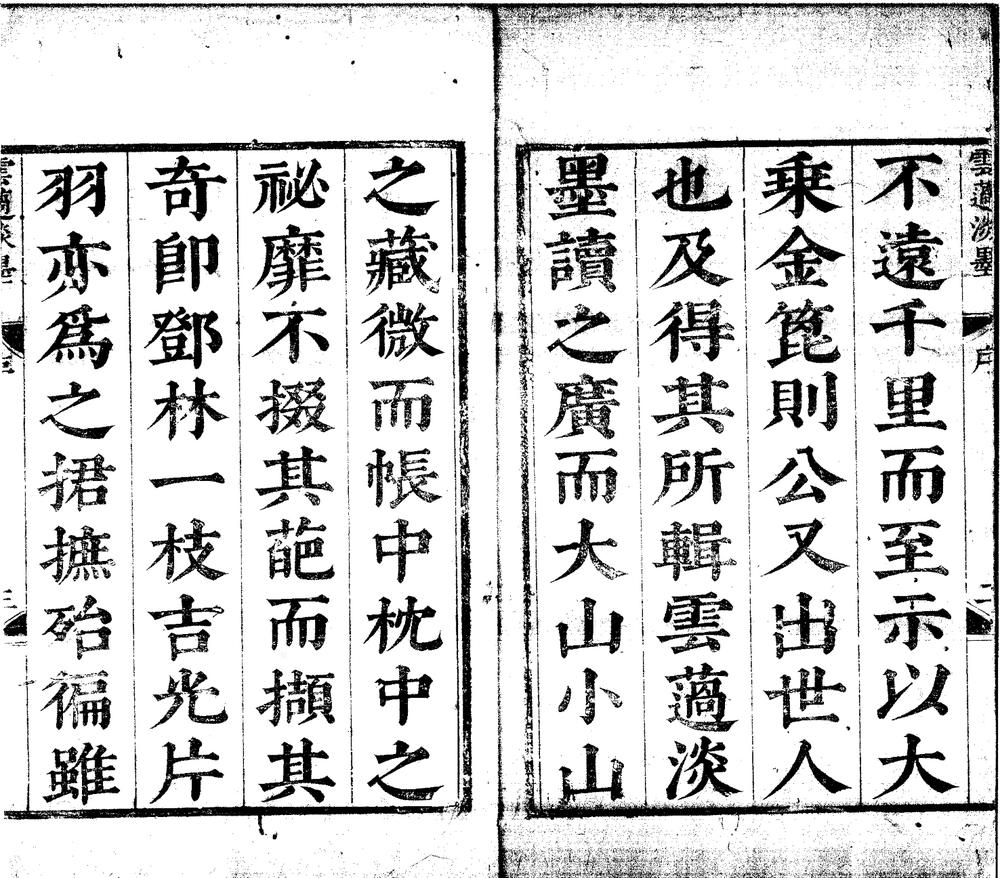 雲薖淡墨 序 二
不遠千里而至示以大
乗金箆則公又出世人
也及得其所輯雲薖淡
墨讀之廣而大山小山
之藏微而帳中枕中之
祕靡不掇其葩而擷其
奇卽鄧林一枝吉光片
羽亦爲之捃摭殆徧雖
雲薖淡墨 三